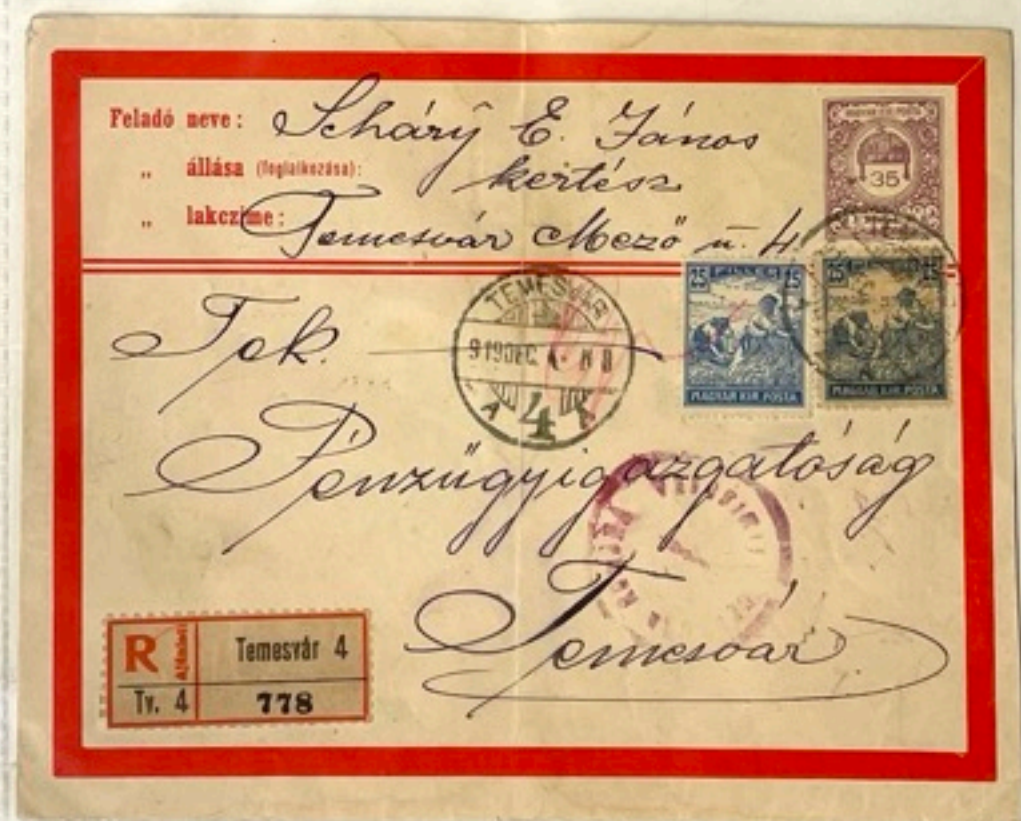 Feladó neve: Scháry E. János
„ állása (foglalkozása): kertész
„ lakczíme: Temesvár Mező u. 4
MAGYAR KIR. POSTA
35
25 FILLÉR 25
MAGYAR KIR. POSTA
25 25
MAGYAR KIR. POSTA
TEMESVÁR
919 DEC.
4
Tek.
Pénzügyigazgatóság
Temesvár
R Ajánlás
Temesvár 4
Tv. 4
778